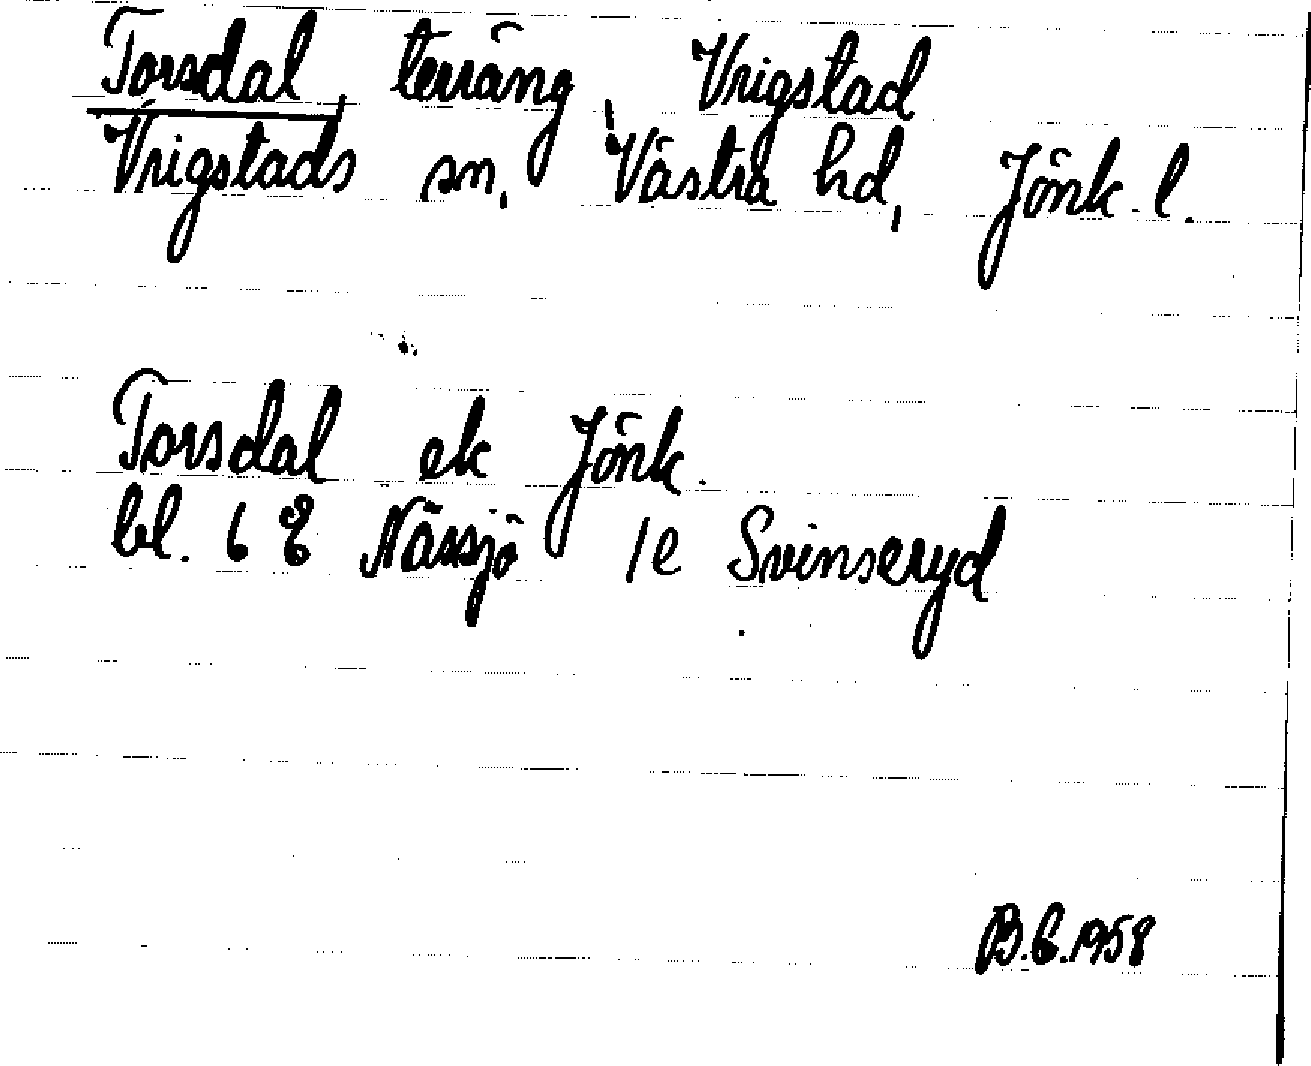 Torsdal, terräng, Vrigstad
Vrigstads sn, Västra hd, Jönk. l.
Torsdal ek Jönk.
bl. 6 E Nässjö 1e Svinseryd
B.E.1958